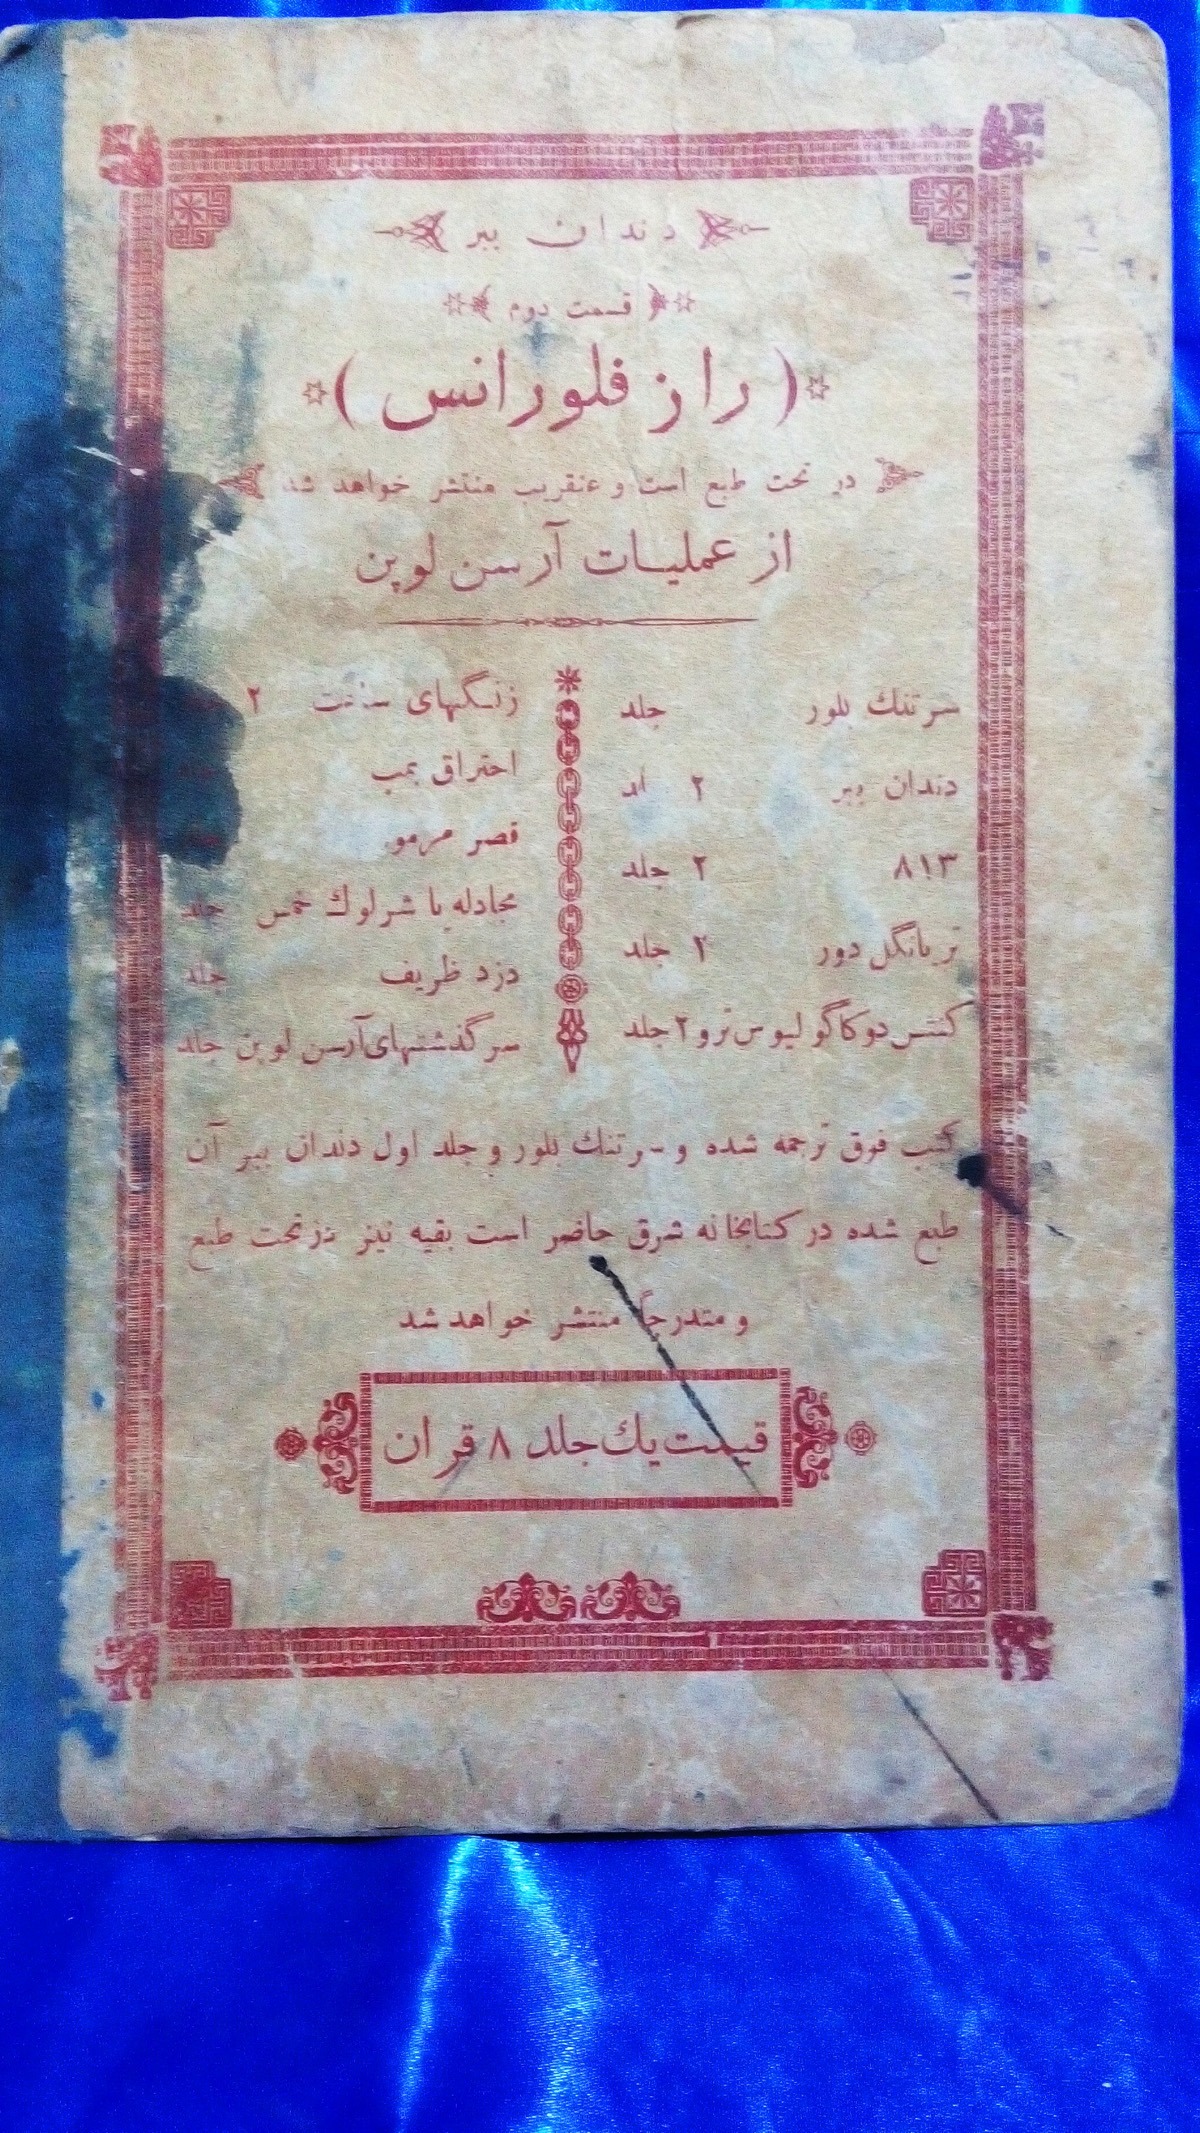 دندان ببر
قسمت دوم
( راز فلورانس )
در تحت طبع است و عنقریب منتشر خواهد شد
از عملیات آرسن لوپن
سر تنك بلور جلد
دندان ببر ۲
۸۱۳ ۲ جلد
تریانگل دور ۲ جلد
کنتس دو کاگولیوس ترو ۲ جلد
زنگهای ساخت ۲
احتراق بمب
قصر مرمو
مجادله با شرلوك خمس جلد
دزد ظریف جلد
سرگذشتهای آرسن لوپن جلد
کتب فوق ترجمه شده و سر تنك بلور و جلد اول دندان ببر آن
طبع شده در کتابخانه شرق حاضر است بقیه نیز در تحت طبع
و متدرجاً منتشر خواهد شد
قیمت یك جلد ۸ قران